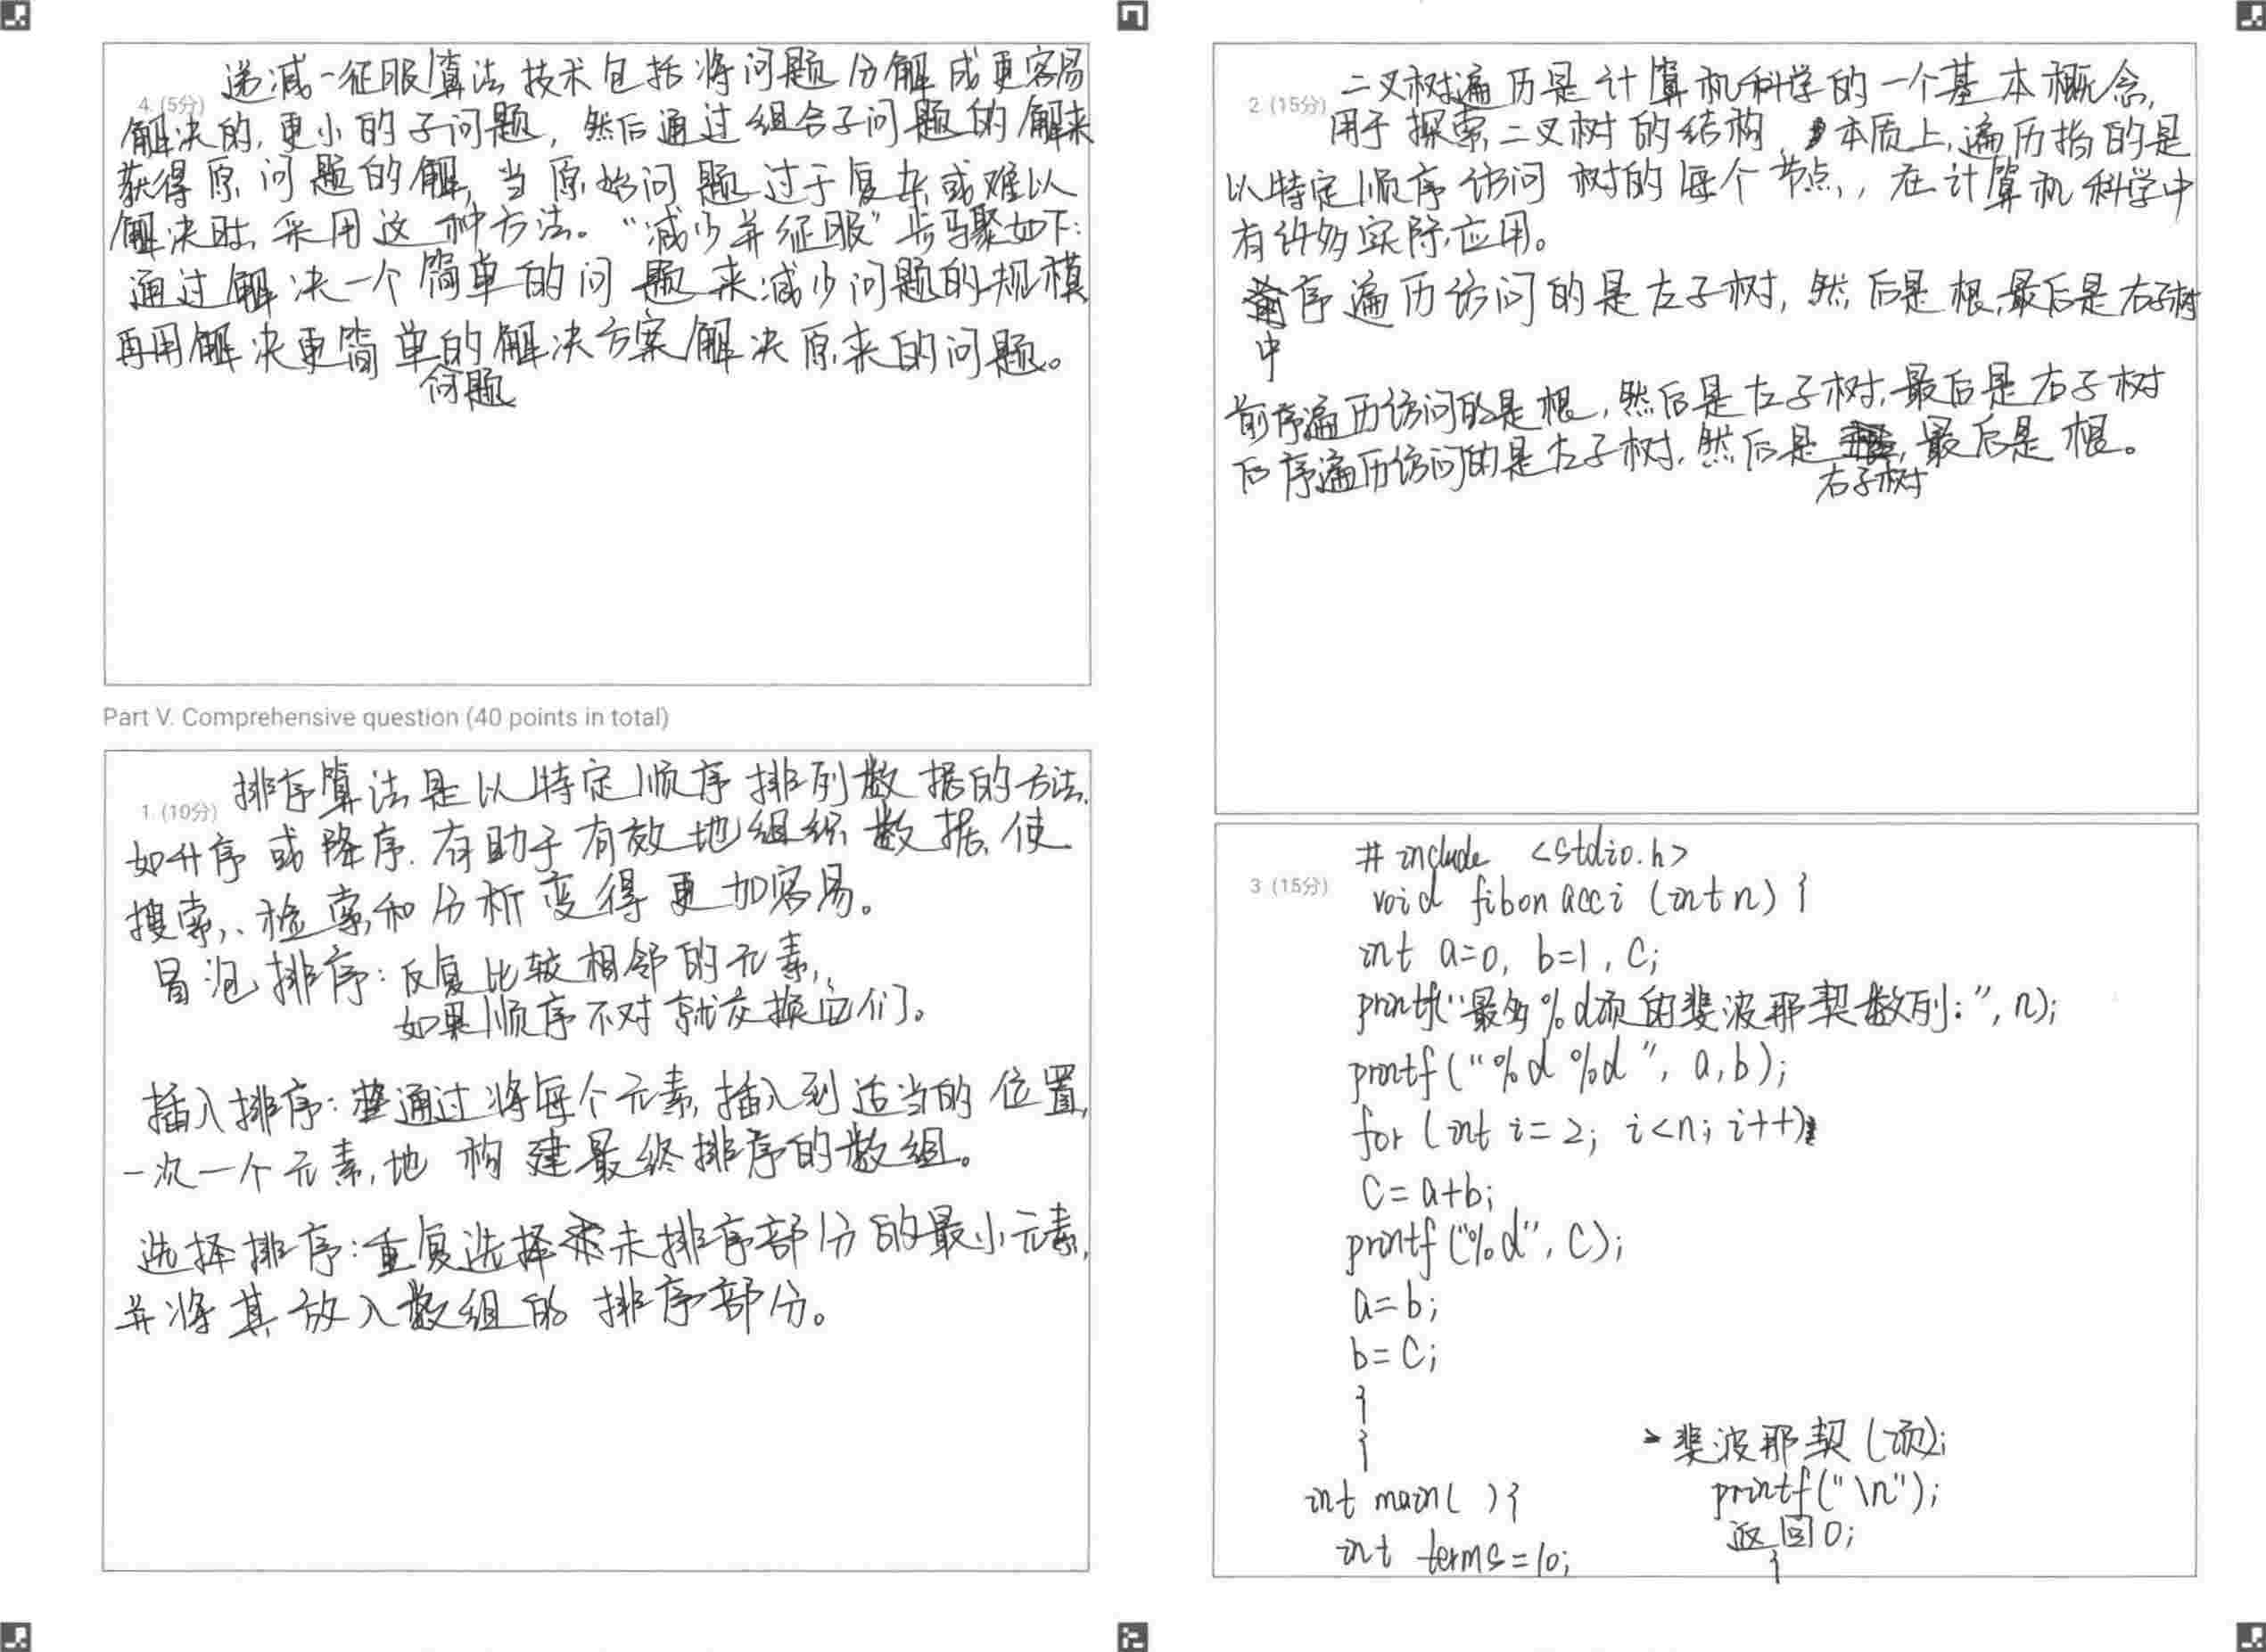 4. (5分)
递减一征服算法技术包括将问题分解成更容易
解决的,更小的子问题,然后通过组合子问题的解来
获得原问题的解,当原始问题过于复杂或难以
解决时,采用这种方法。“减少并征服”步骤如下:
通过解决一个简单的问题来减少问题的规模
再用解决更简单的解决方案解决原来的问题。
问题
Part V. Comprehensive question (40 points in total)
1. (10分)
排序算法是以特定顺序排列数据的方法,
如升序或降序.有助于有效地组织数据,使
搜索、检索和分析变得更加容易。
冒泡排序:反复比较相邻的元素,
如果顺序不对就交换它们。
插入排序:通过将每个元素插入到适当的位置,
一次一个元素地构建最终排序的数组。
选择排序:重复选择未排序部分的最小元素,
并将其放入数组的排序部分。
2 (15分)
二叉树遍历是计算机科学的一个基本概念,
用于探索二叉树的结构,本质上,遍历指的是
以特定顺序访问树的每个节点,在计算机科学中
有许多实际应用。
序遍历访问的是左子树,然后是根,最后是右子树
中
前序遍历访问的是根,然后是左子树,最后是右子树
后序遍历访问的是左子树,然后是,最后是根。
右子树
3 (15分)
#include <stdio.h>
void fibonacci (int n) {
int a=0, b=1, c;
printf("最多%d项的斐波那契数列:", n);
printf("%d %d", a,b);
for (int i=2; i<n; i++)
c=a+b;
printf("%d", c);
a=b;
b=c;
}
}
int main( ) {
int terms=10;
斐波那契(项);
printf("\n");
返回0;
}